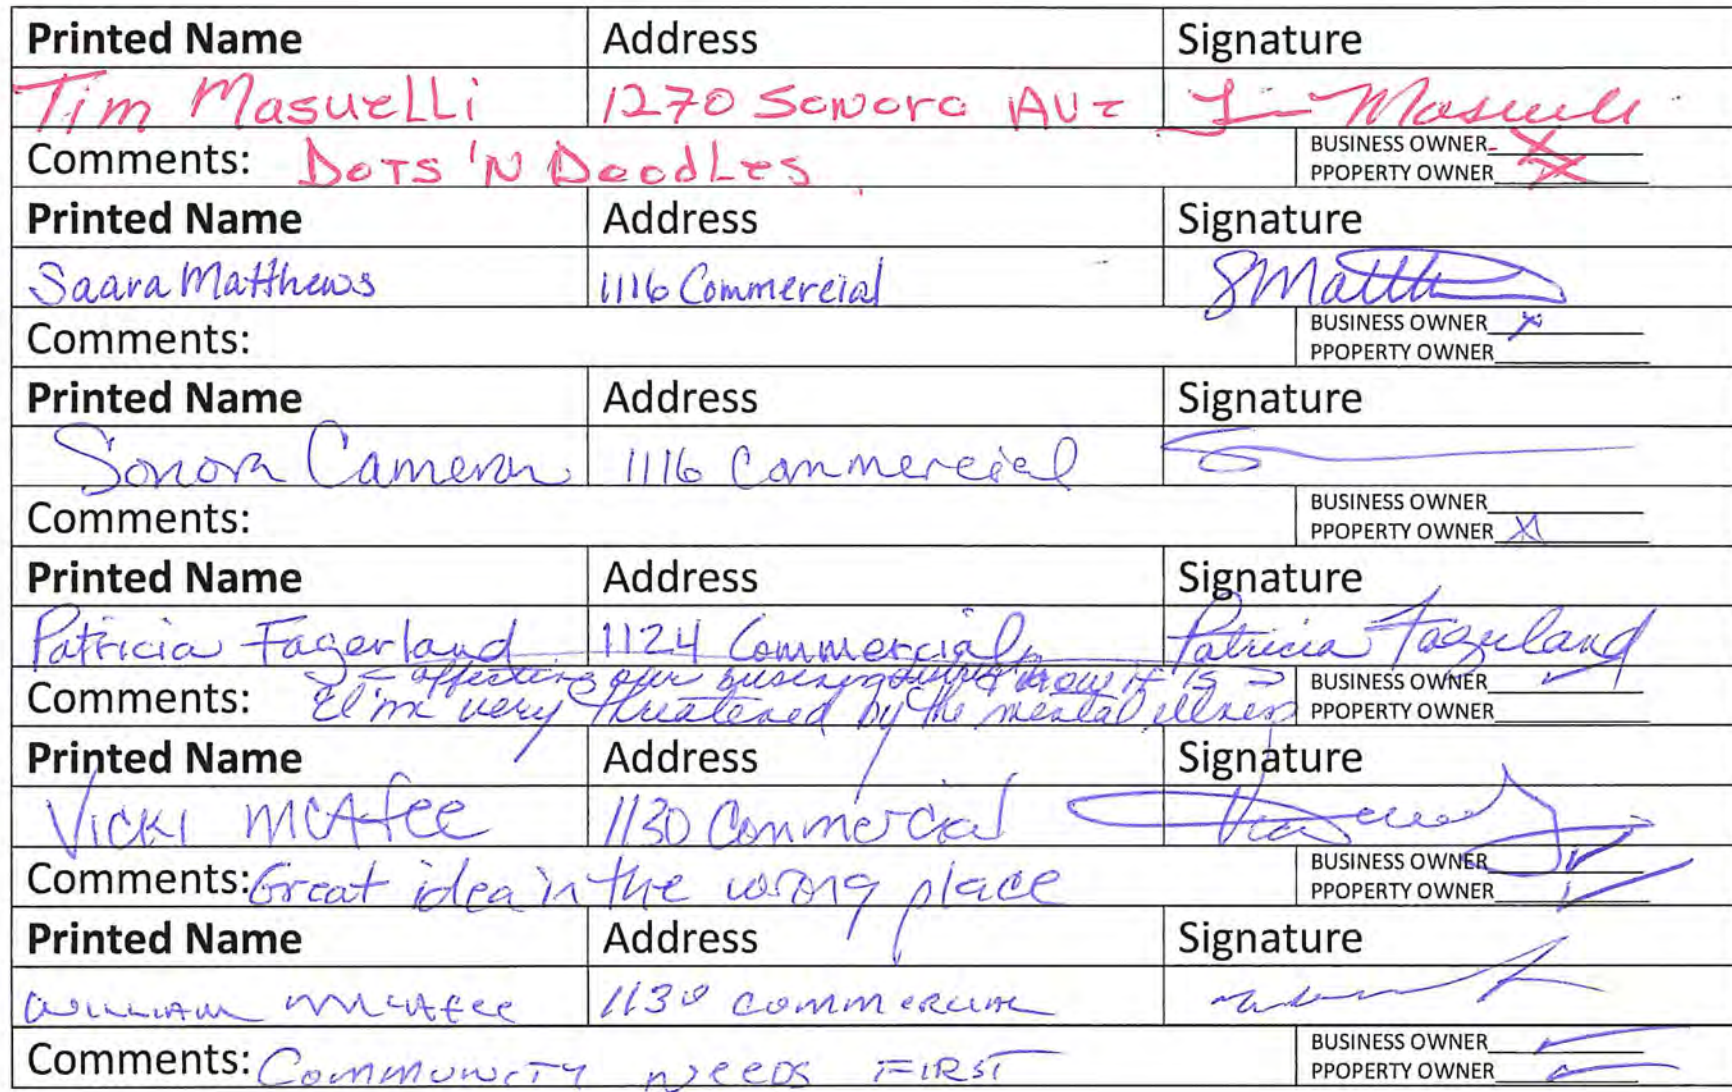 Printed Name Address Signature
Tim Masuelli 1270 Sonora Ave Tim Masuelli
Comments: Dots 'N Doodles BUSINESS OWNER X
PPOPERTY OWNER X
Printed Name Address Signature
Saara Matthews 1116 Commercial SMatth
Comments: BUSINESS OWNER x
PPOPERTY OWNER
Printed Name Address Signature
Sonora Cameron 1116 Commercial
Comments: BUSINESS OWNER
PPOPERTY OWNER X
Printed Name Address Signature
Patricia Fagerland 1124 Commercial Patricia Fagerland
affecting our business now it is BUSINESS OWNER ✓
Comments: I'm very threatened by the mental illness PPOPERTY OWNER
Printed Name Address Signature
Vicki McAfee 1130 Commercial
Comments: Great idea in the wrong place BUSINESS OWNER ✓
PPOPERTY OWNER ✓
Printed Name Address Signature
William McAfee 1130 Commercial
Comments: Community needs FIRST BUSINESS OWNER ✓
PPOPERTY OWNER ✓